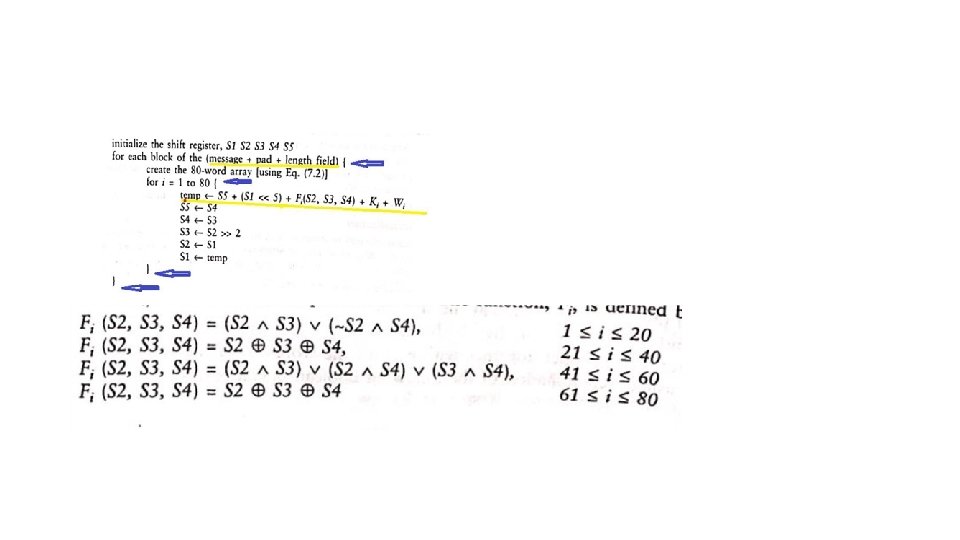 initialize the shift register, S1 S2 S3 S4 S5
for each block of the (message + pad + length field) {
create the 80-word array [using Eq. (7.2)]
for i = 1 to 80 {
temp ← S5 + (S1 << 5) + Fᵢ(S2, S3, S4) + Kᵢ + Wᵢ
S5 ← S4
S4 ← S3
S3 ← S2 >> 2
S2 ← S1
S1 ← temp
}
}
is defined
Fᵢ (S2, S3, S4) = (S2 ∧ S3) ∨ (~S2 ∧ S4), 1 ≤ i ≤ 20
Fᵢ (S2, S3, S4) = S2 ⊕ S3 ⊕ S4, 21 ≤ i ≤ 40
Fᵢ (S2, S3, S4) = (S2 ∧ S3) ∨ (S2 ∧ S4) ∨ (S3 ∧ S4), 41 ≤ i ≤ 60
Fᵢ (S2, S3, S4) = S2 ⊕ S3 ⊕ S4 61 ≤ i ≤ 80